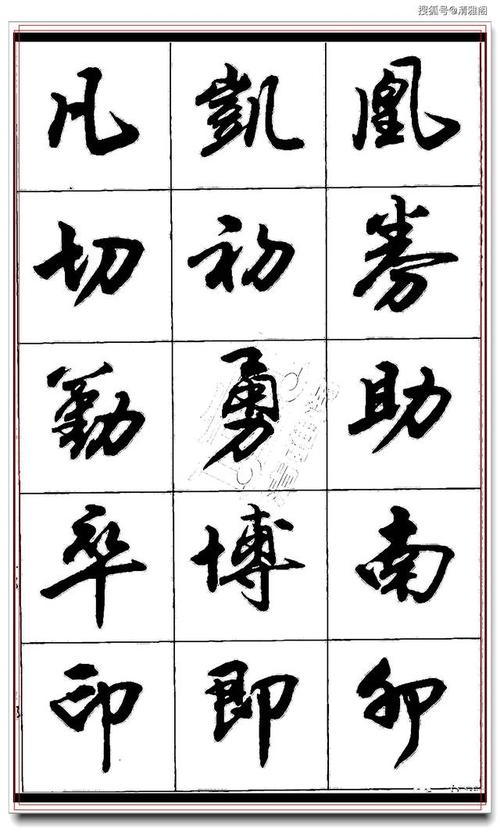 搜狐号@清雅阁
凡 凱 凰
切 初 券
勤 勇 助
卒 博 南
印 即 卯